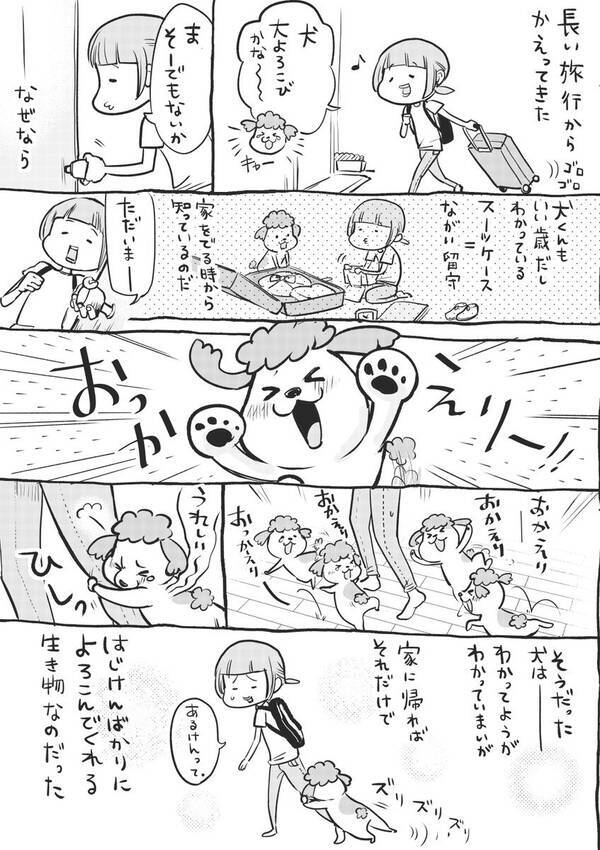 長い旅行から
かえってきた
ゴロ
ゴロ
犬
大よろこび
かな〜〜
キャー
ま
そーでもないか
なぜなら
犬くんも
いい歳だし
わかっている
スーツケース
=
ながい留守
家をでる時から
知っているのだ
ただいまー
おっか
えりー!!
おかえり
おかえり
おかえり
おっかえり
うれしい
ひしっ
そうだった
犬は――
わかってようが
わかっていまいが
家に帰れば
それだけで
はじけんばかりに
よろこんでくれる
生き物なのだった
あるけんって。
ズリ
ズリ
ズリ